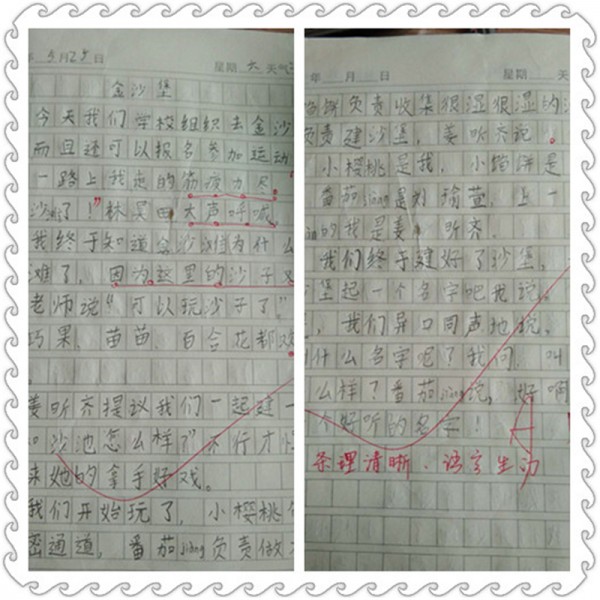 年 5月25日 星期六 天气
金沙堡
今天我们学校组织去金沙
而且还可以报名参加运动
一路上我走的筋疲力尽
沙滩了！”林昊田大声呼喊，
我终于知道金沙滩为什么
滩了，因为这里的沙子又
老师说“可以玩沙子了”
巧果、苗苗、百合花都
姜昕齐提议我们一起建一
沙池怎么样？”不行才
她的拿手好戏。
我们开始玩了，小樱桃
密通道，番茄jiàng负责做
年 月 日 星期 天
负责收集很湿很湿的
责建沙堡，姜昕齐说。
小樱桃是我，小馅饼是
番茄jiàng是刘瑜萱，上一
的我是姜昕齐。
我们终于建好了沙堡，
堡起一个名字吧我说。
，我们异口同声地说，
什么名字呢？我问．叫
么样？番茄jiàng说，好啊
个好听的名字！
条理清晰．语言生动